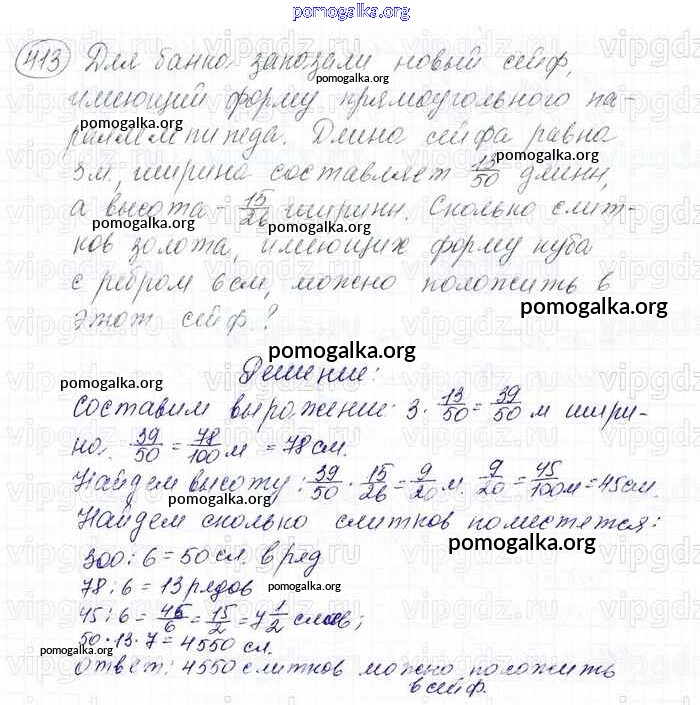 pomogalka.org
413 Для банка заказали новый сейф,
pomogalka.org
имеющий форму прямоугольного па-
pomogalka.org
раллелепипеда. Длина сейфа равна
pomogalka.org
3м, ширина составляет 13/50 длины,
а высота - 15/26 ширины. Сколько слит-
pomogalka.org pomogalka.org
ков золота, имеющих форму куба
с ребром 6см, можно положить в
pomogalka.org
этот сейф?
pomogalka.org
Решение:
pomogalka.org
Составим выражение: 3 · 13/50 = 39/50 м шири-
на. 39/50 = 78/100 м = 78 см.
pomogalka.org
Найдем высоту: 39/50 · 15/26 = 9/20 м 9/20 = 45/100 м = 45 см.
pomogalka.org
Найдем сколько слитков поместется:
pomogalka.org
300 : 6 = 50 сл. в ряд
78 : 6 = 13 рядов
pomogalka.org
45 : 6 = 45/6 = 15/2 = 7 1/2 слоев;
50 · 13 · 7 = 4550 сл.
pomogalka.org
Ответ: 4550 слитков можно положить
в сейф.